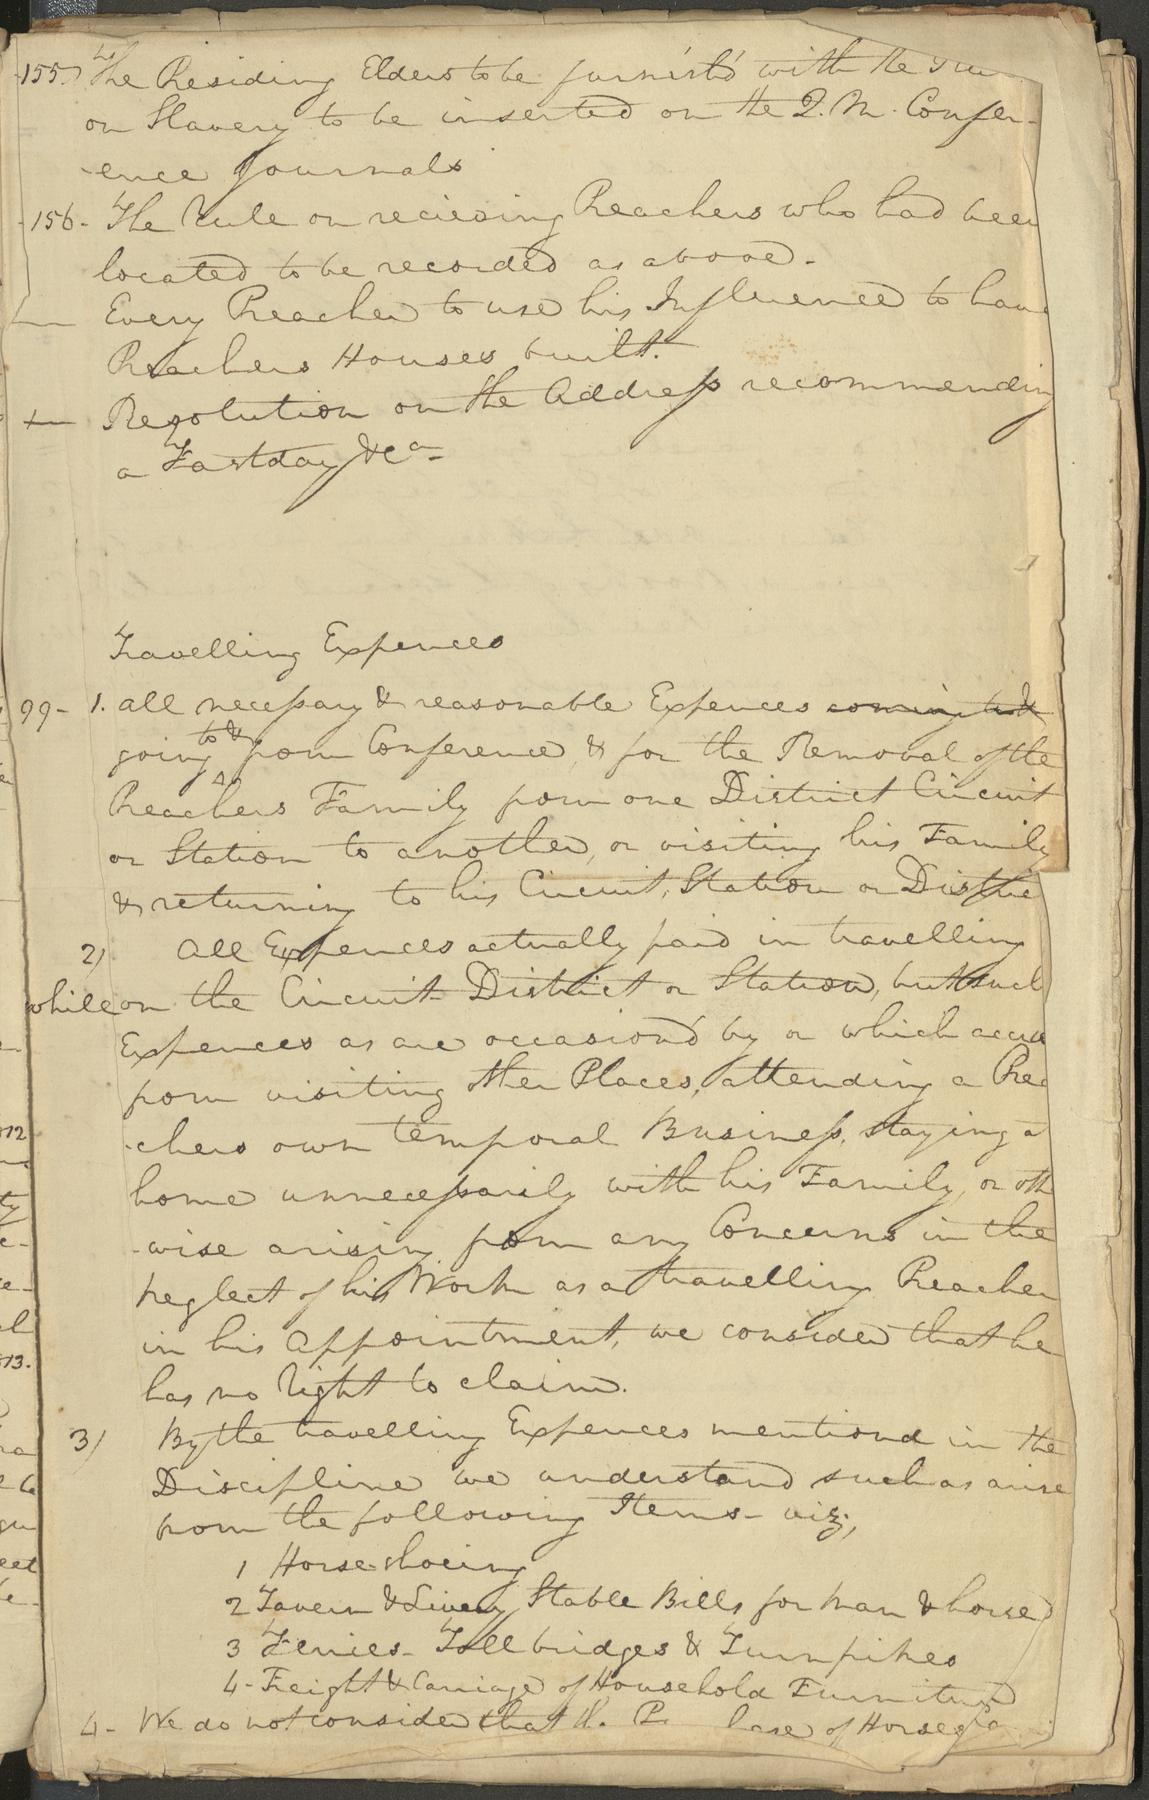 155) The Presiding Elders to be furnish'd with the
on Slavery to be inserted on the Q. M. Confer-
-ence Journals
-156- The Rule on recieving Preachers who had been
located to be recorded as above.-
Every Preacher to use his Influence to have
Preachers Houses built.
Resolution on the Address recommending
a Fastday &ca-
Travelling Expences
99- 1. All necessary & reasonable Expences coming to &
going to & from Conference, & for the Removal of the
Preachers Family from one District Circuit
or Station to another, or visiting his Family
& returning to his Circuit, Station or
2) All Expences actually paid in travelling
while on the Circuit District or Station, but such
Expences as are occasion'd by or which accrue
from visiting other Places, attending a Prea
-chers own temporal Business, staying a
home unnecessarily with his Family, or oth
-wise arising from any Concerns in the
neglect of his Work as a travelling Preacher
in his Appointment, we consider that he
has no Right to claim.
3) By the travelling Expences mentiond in the
Discipline we understand such as arise
from the following Items- viz,
1 Horse-shoeing
2 Tavern & Livery Stable Bills for man & horse
3 Ferries- Toll bridges & Turnpikes
4- Freight & Carriage of Household Furniture
4- We do not consider that of Horses